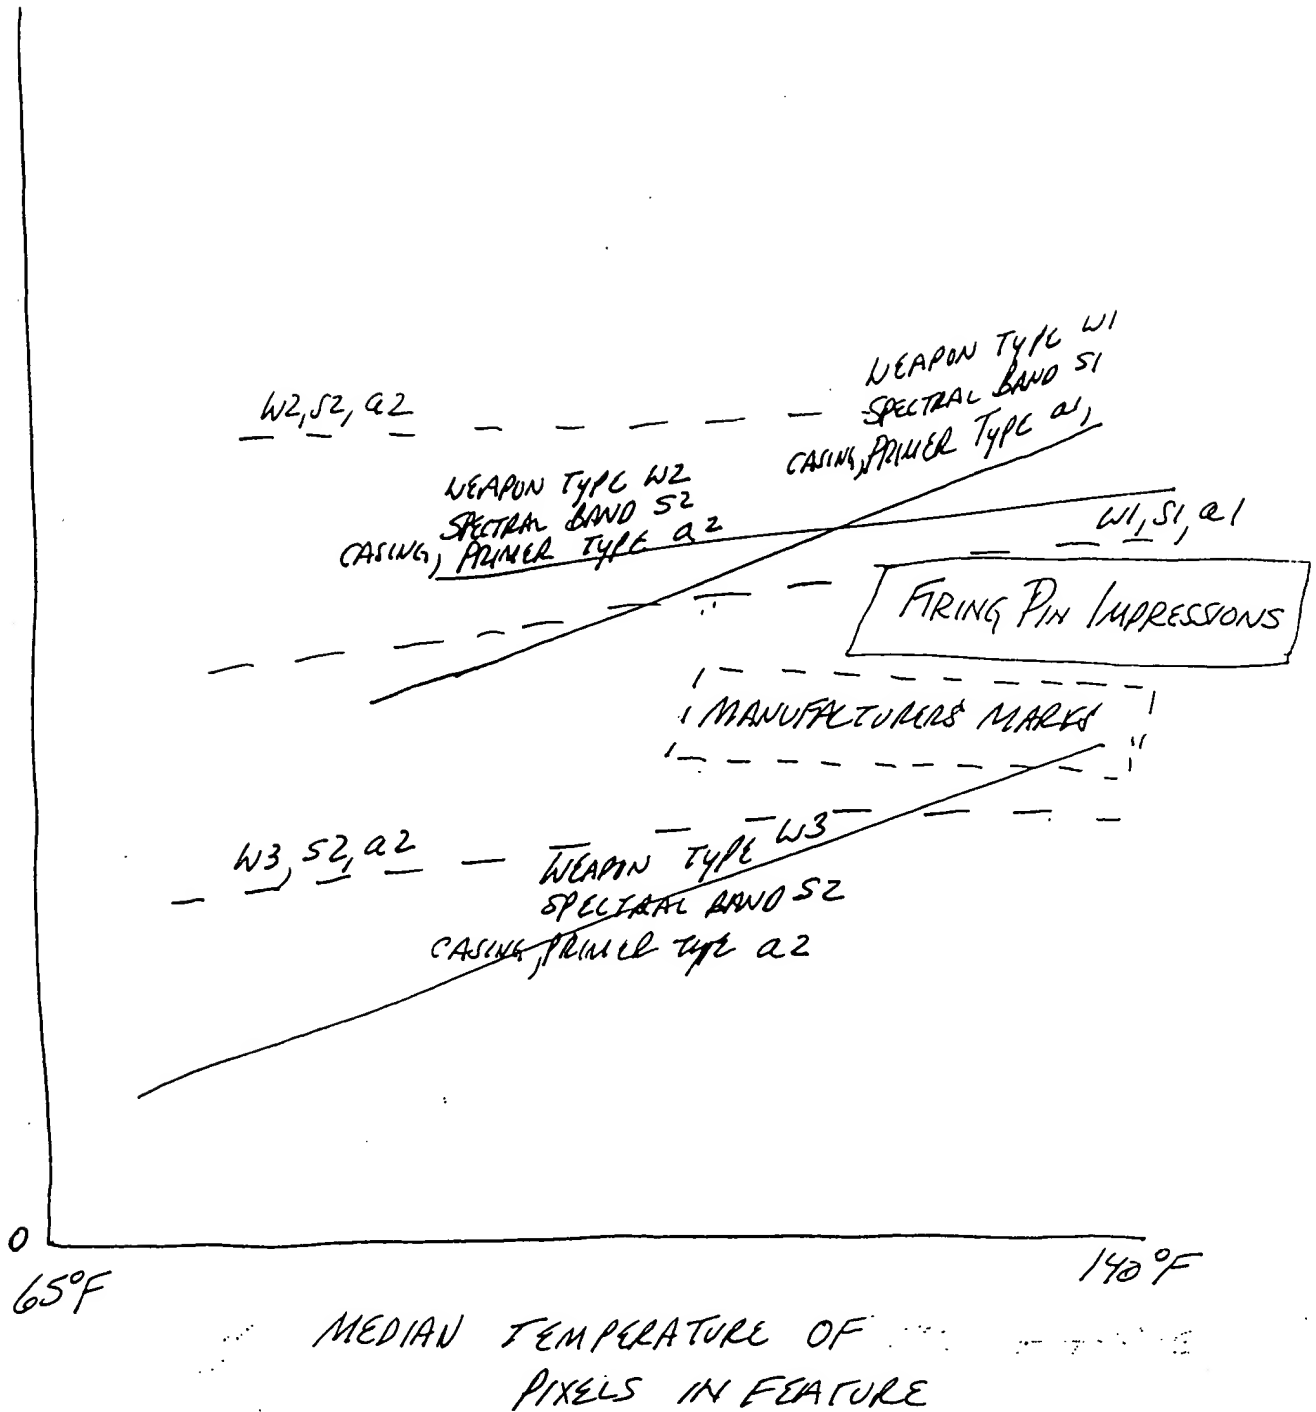 WEAPON TYPE W1
SPECTRAL BAND S1
CASING, PRIMER TYPE a1,
W2, S2, a2
WEAPON TYPE W2
SPECTRAL BAND S2
CASING, PRIMER TYPE a2
W1, S1, a1
FIRING PIN IMPRESSIONS
MANUFACTURERS MARKS
W3, S2, a2
WEAPON TYPE W3
SPECTRAL BAND S2
CASING, PRIMER TYPE a2
0
65°F
140°F
MEDIAN TEMPERATURE OF
PIXELS IN FEATURE